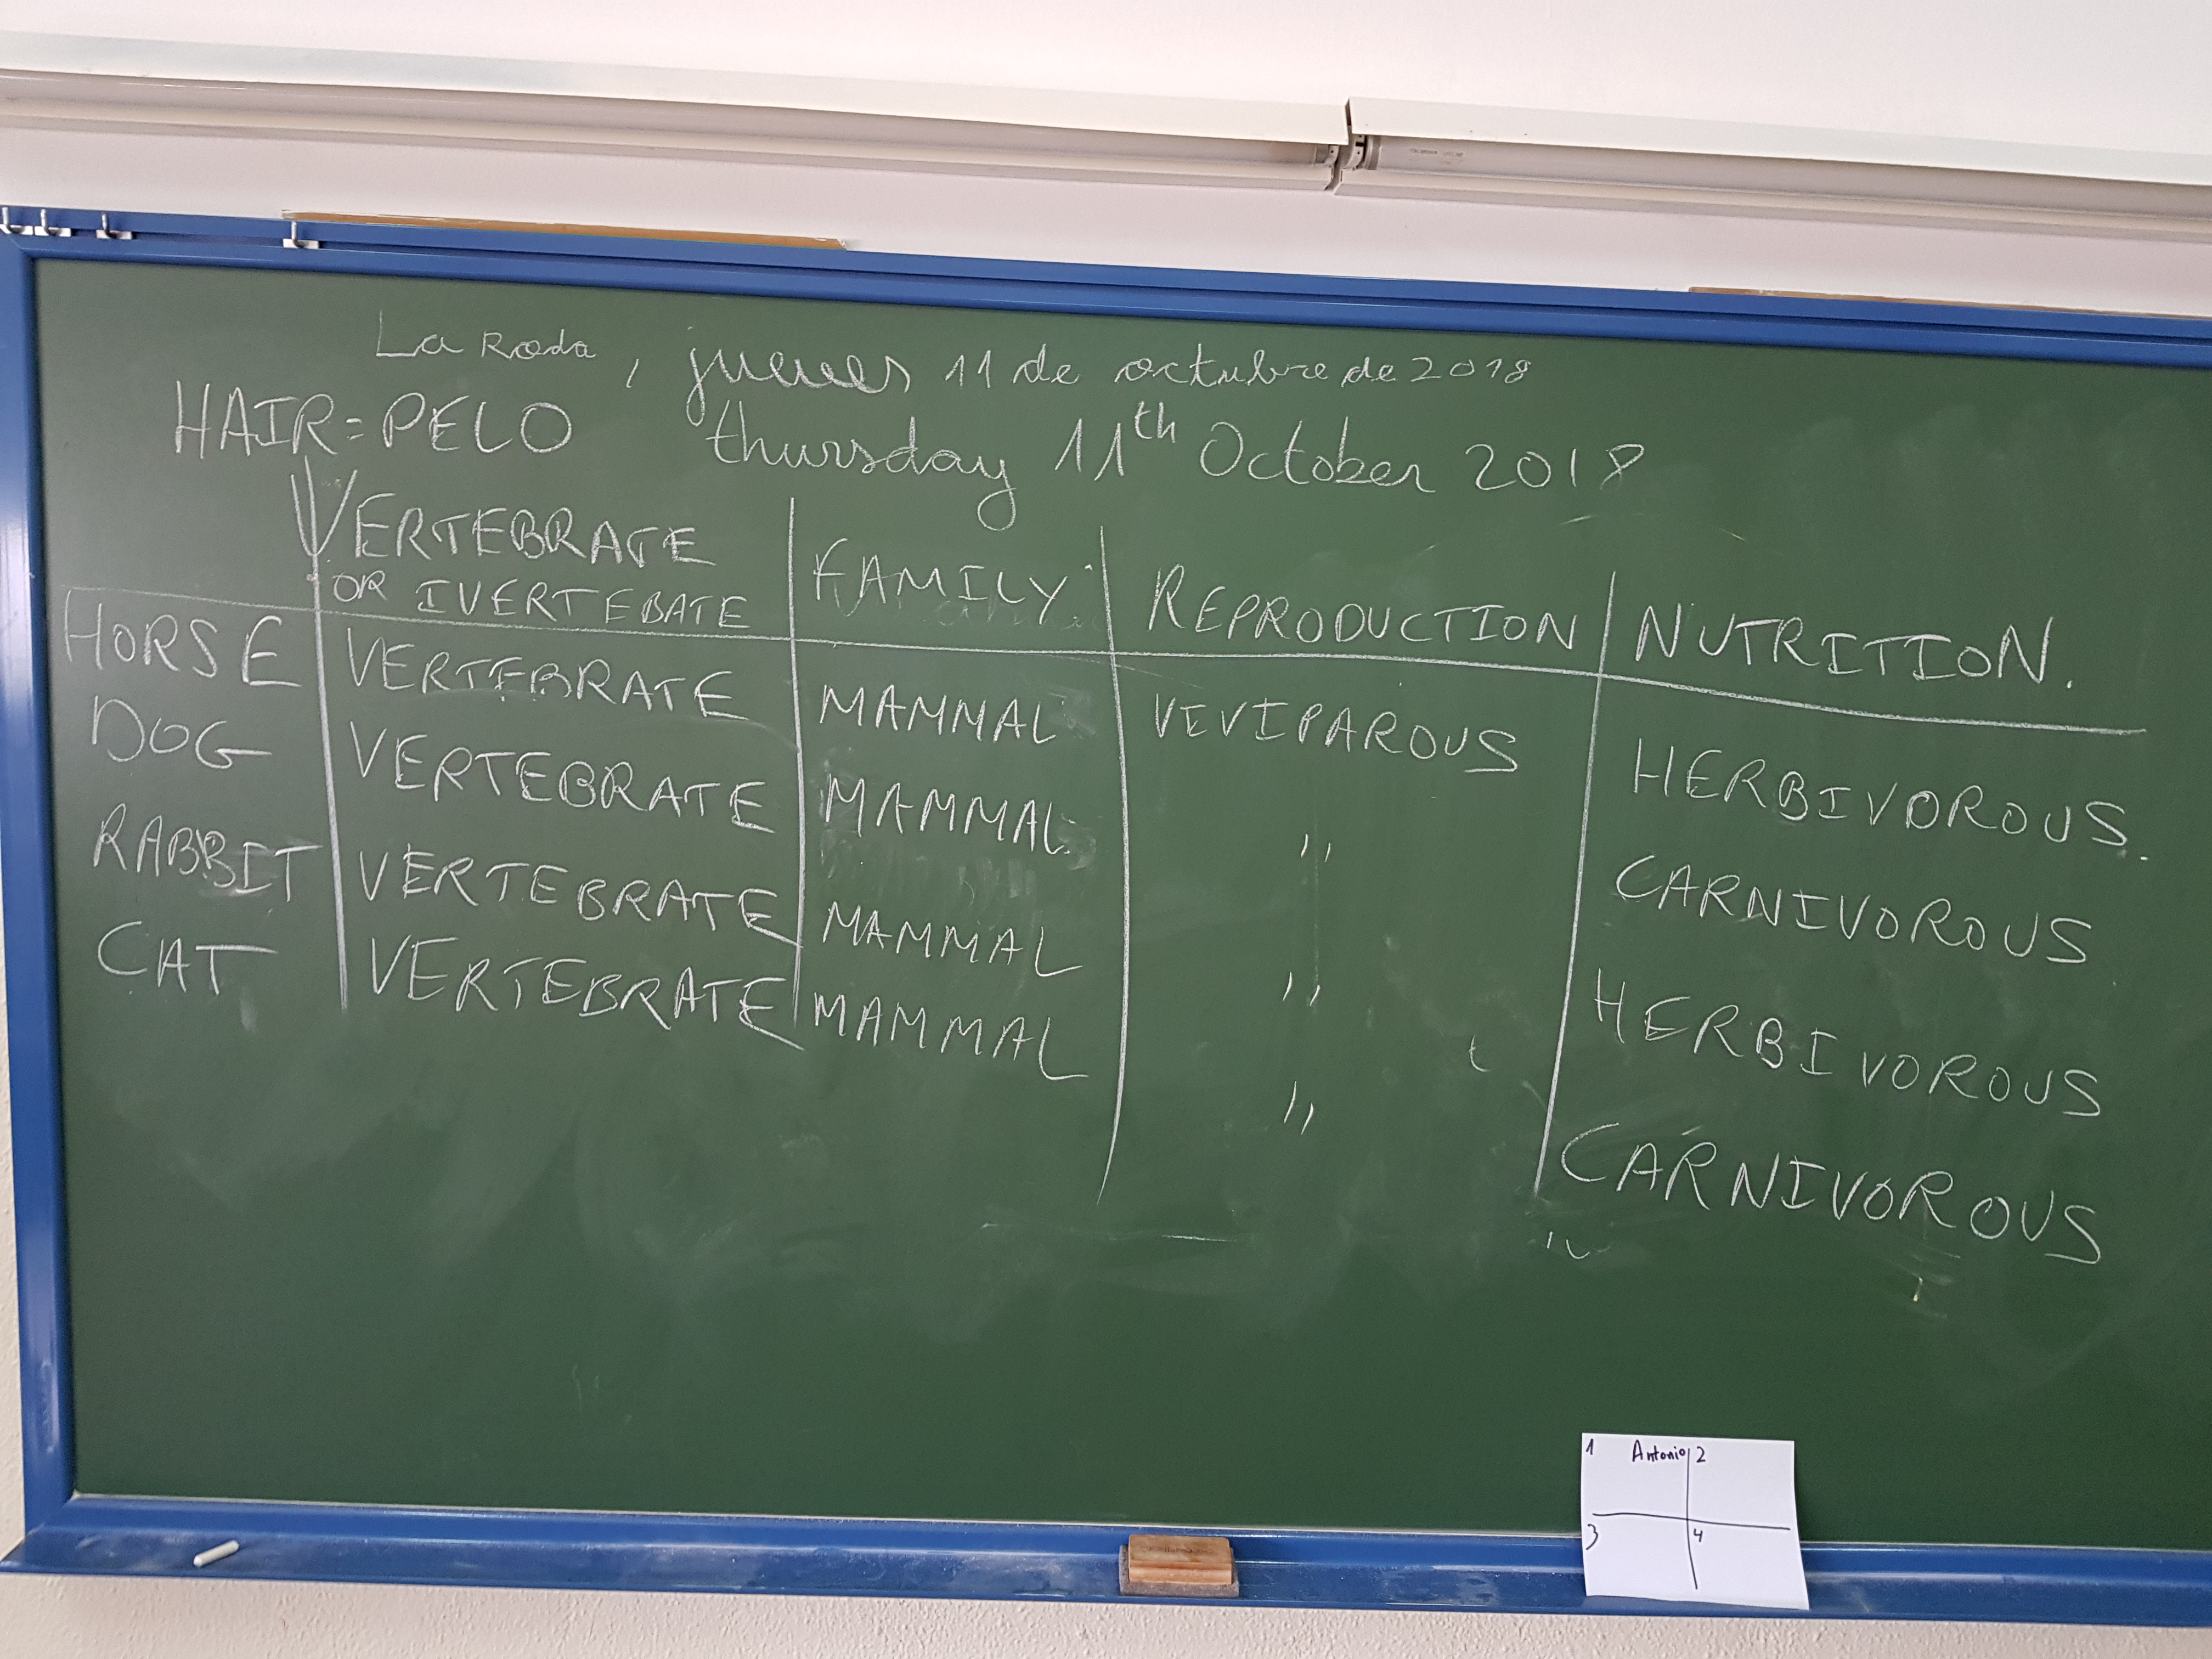 La Roda, jueves 11 de octubre de 2018
HAIR=PELO thursday 11th October 2018
VERTEBRATE
OR IVERTEBATE FAMILY REPRODUCTION NUTRITION.
HORSE VERTEBRATE MAMMAL VIVIPAROUS HERBIVOROUS.
DOG VERTEBRATE MAMMAL " CARNIVOROUS
RABBIT VERTEBRATE MAMMAL " HERBIVOROUS
CAT VERTEBRATE MAMMAL " CARNIVOROUS
1 Antonio 2
3 4